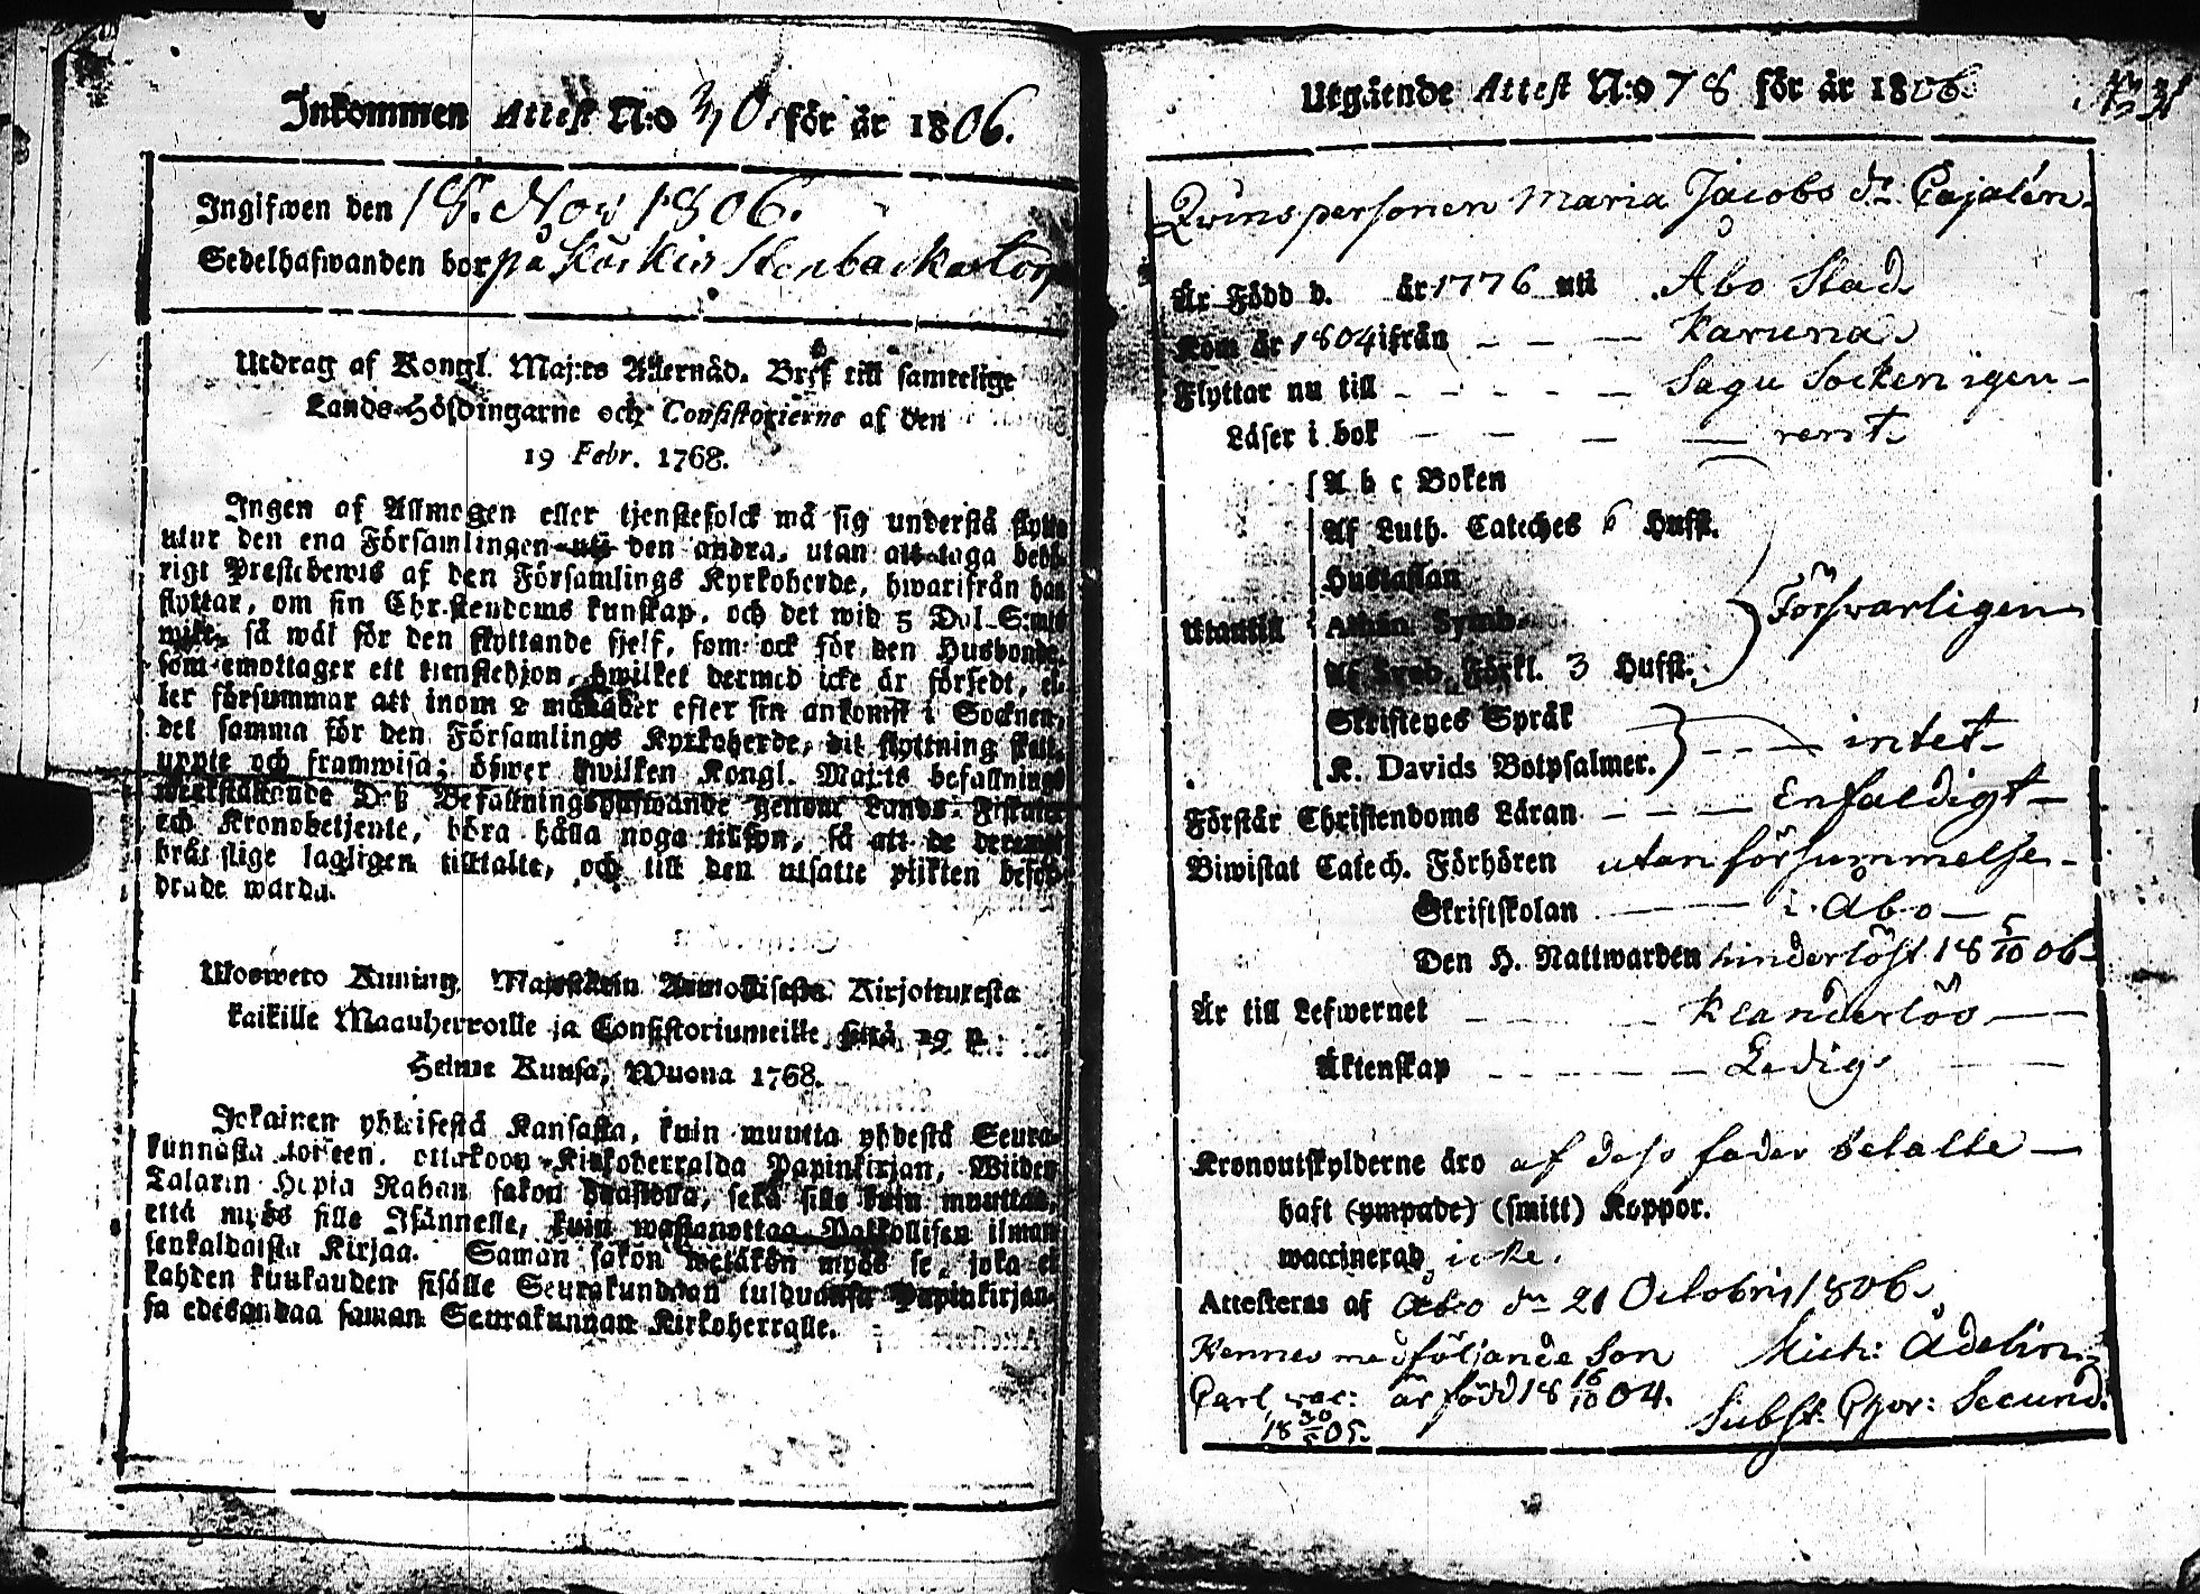 Inkommen Attest N:o 30. för år 1806.
Ingifwen den 18. Nov 1806.
Sedelhafwanden bor på Stenbacka torp
Utdrag af Kongl. Maj:ts Allernåd. Bref till samtelige
Lands-Höfdingarne och Consistorierne af den
19 Febr. 1768.
Ingen af Allmogen eller tjenstefolck må sig understå flytta
utur den ena Församlingen uti den andra, utan att taga behö-
rigt Prestebewis af den Församlings Kyrkoherde, hwarifrån han
flyttar, om sin Christendoms kunskap, och det wid 5 Dal. S:mts
wite, så wäl för den flyttande sjelf, som ock för den Husbonde,
som emottager ett tienstehjon, hwilket dermed icke är försedt, el-
ler försummar att inom 2 månader efter sin ankomst i Socknen,
det samma för den Församlings Kyrkoherde, dit flyttning skett,
uppte och framwisa; öfwer hwilken Kongl. Maj:ts befallnings
werkställande Dess Befallningshafwande genom Lands-Fiskaler
och Kronobetjente, böra hålla noga tillsyn, så att de deremot
bråtslige lagligen tilltalte, och till den utsatte plikten beford-
drade warda.
Ulosweto Kuning. Majestetin Armollisesta Kirjoituxesta
kaikille Maanherroille ja Consistoriumeille, siitä 19 p.
Helme Kuusa, Wuona 1768.
Jokainen yhteisestä Kansasta, kuin muutta yhdestä Seura-
kunnasta toiseen, ottakoon Kirkoherralda Papinkirjan, Wiiden
Talarin Hopia Rahan sakon haastolla, sekä sille kuin muuttaa,
että myös sille Isännelle, kuin wastanottaa Palkollisen ilman
senkaldaista Kirjaa. Saman sakon wetäkön myös se, joka ei
kahden kuukauden sisälle Seurakundaan tulduansa Papinkirjan-
sa edesandaa saman Seurakunnan Kirkoherralle.
Utgående Attest N:o 78 för år 1806.
Qwinspersonen Maria Jacobs dr. Cajalén
Är Född d. år 1776 uti Åbo Stad
Kom år 1804 ifrån - - - Karuna
Flyttar nu till - - - - - Sagu Socken igen -
Läser i bok - - - - rent
A b c Boken
Af Luth. Cateches 6 Hufst.
Hustaflan
Utantill Athan. Symb. Försvarligen
Af Sveb. Förkl. 3 Hufst.
Skriftenes Språk
K. Davids Botpsalmer. - - - intet -
Förstår Christendoms Läran - - - Enfaldigt -
Biwistat Catech. Förhören utan försummelse -
Skriftskolan - - i Åbo -
Den H. Nattwarden hinderlöst 18 5/10 06 -
Är till Lefwernet - - - Klanderlös -
Äktenskap - - - - Ledig
Kronoutskylderne äro af dess fader betalte -
haft (ympade) (smitt) Koppor.
waccinerad icke.
Attesteras af Åbo dn 21 Octobris 1806.
Hennes medföljande Son Mich: Adelin
Carl vac: är född 18 16/10 04. Subst: Pær: Secund.
18 30/5 05.